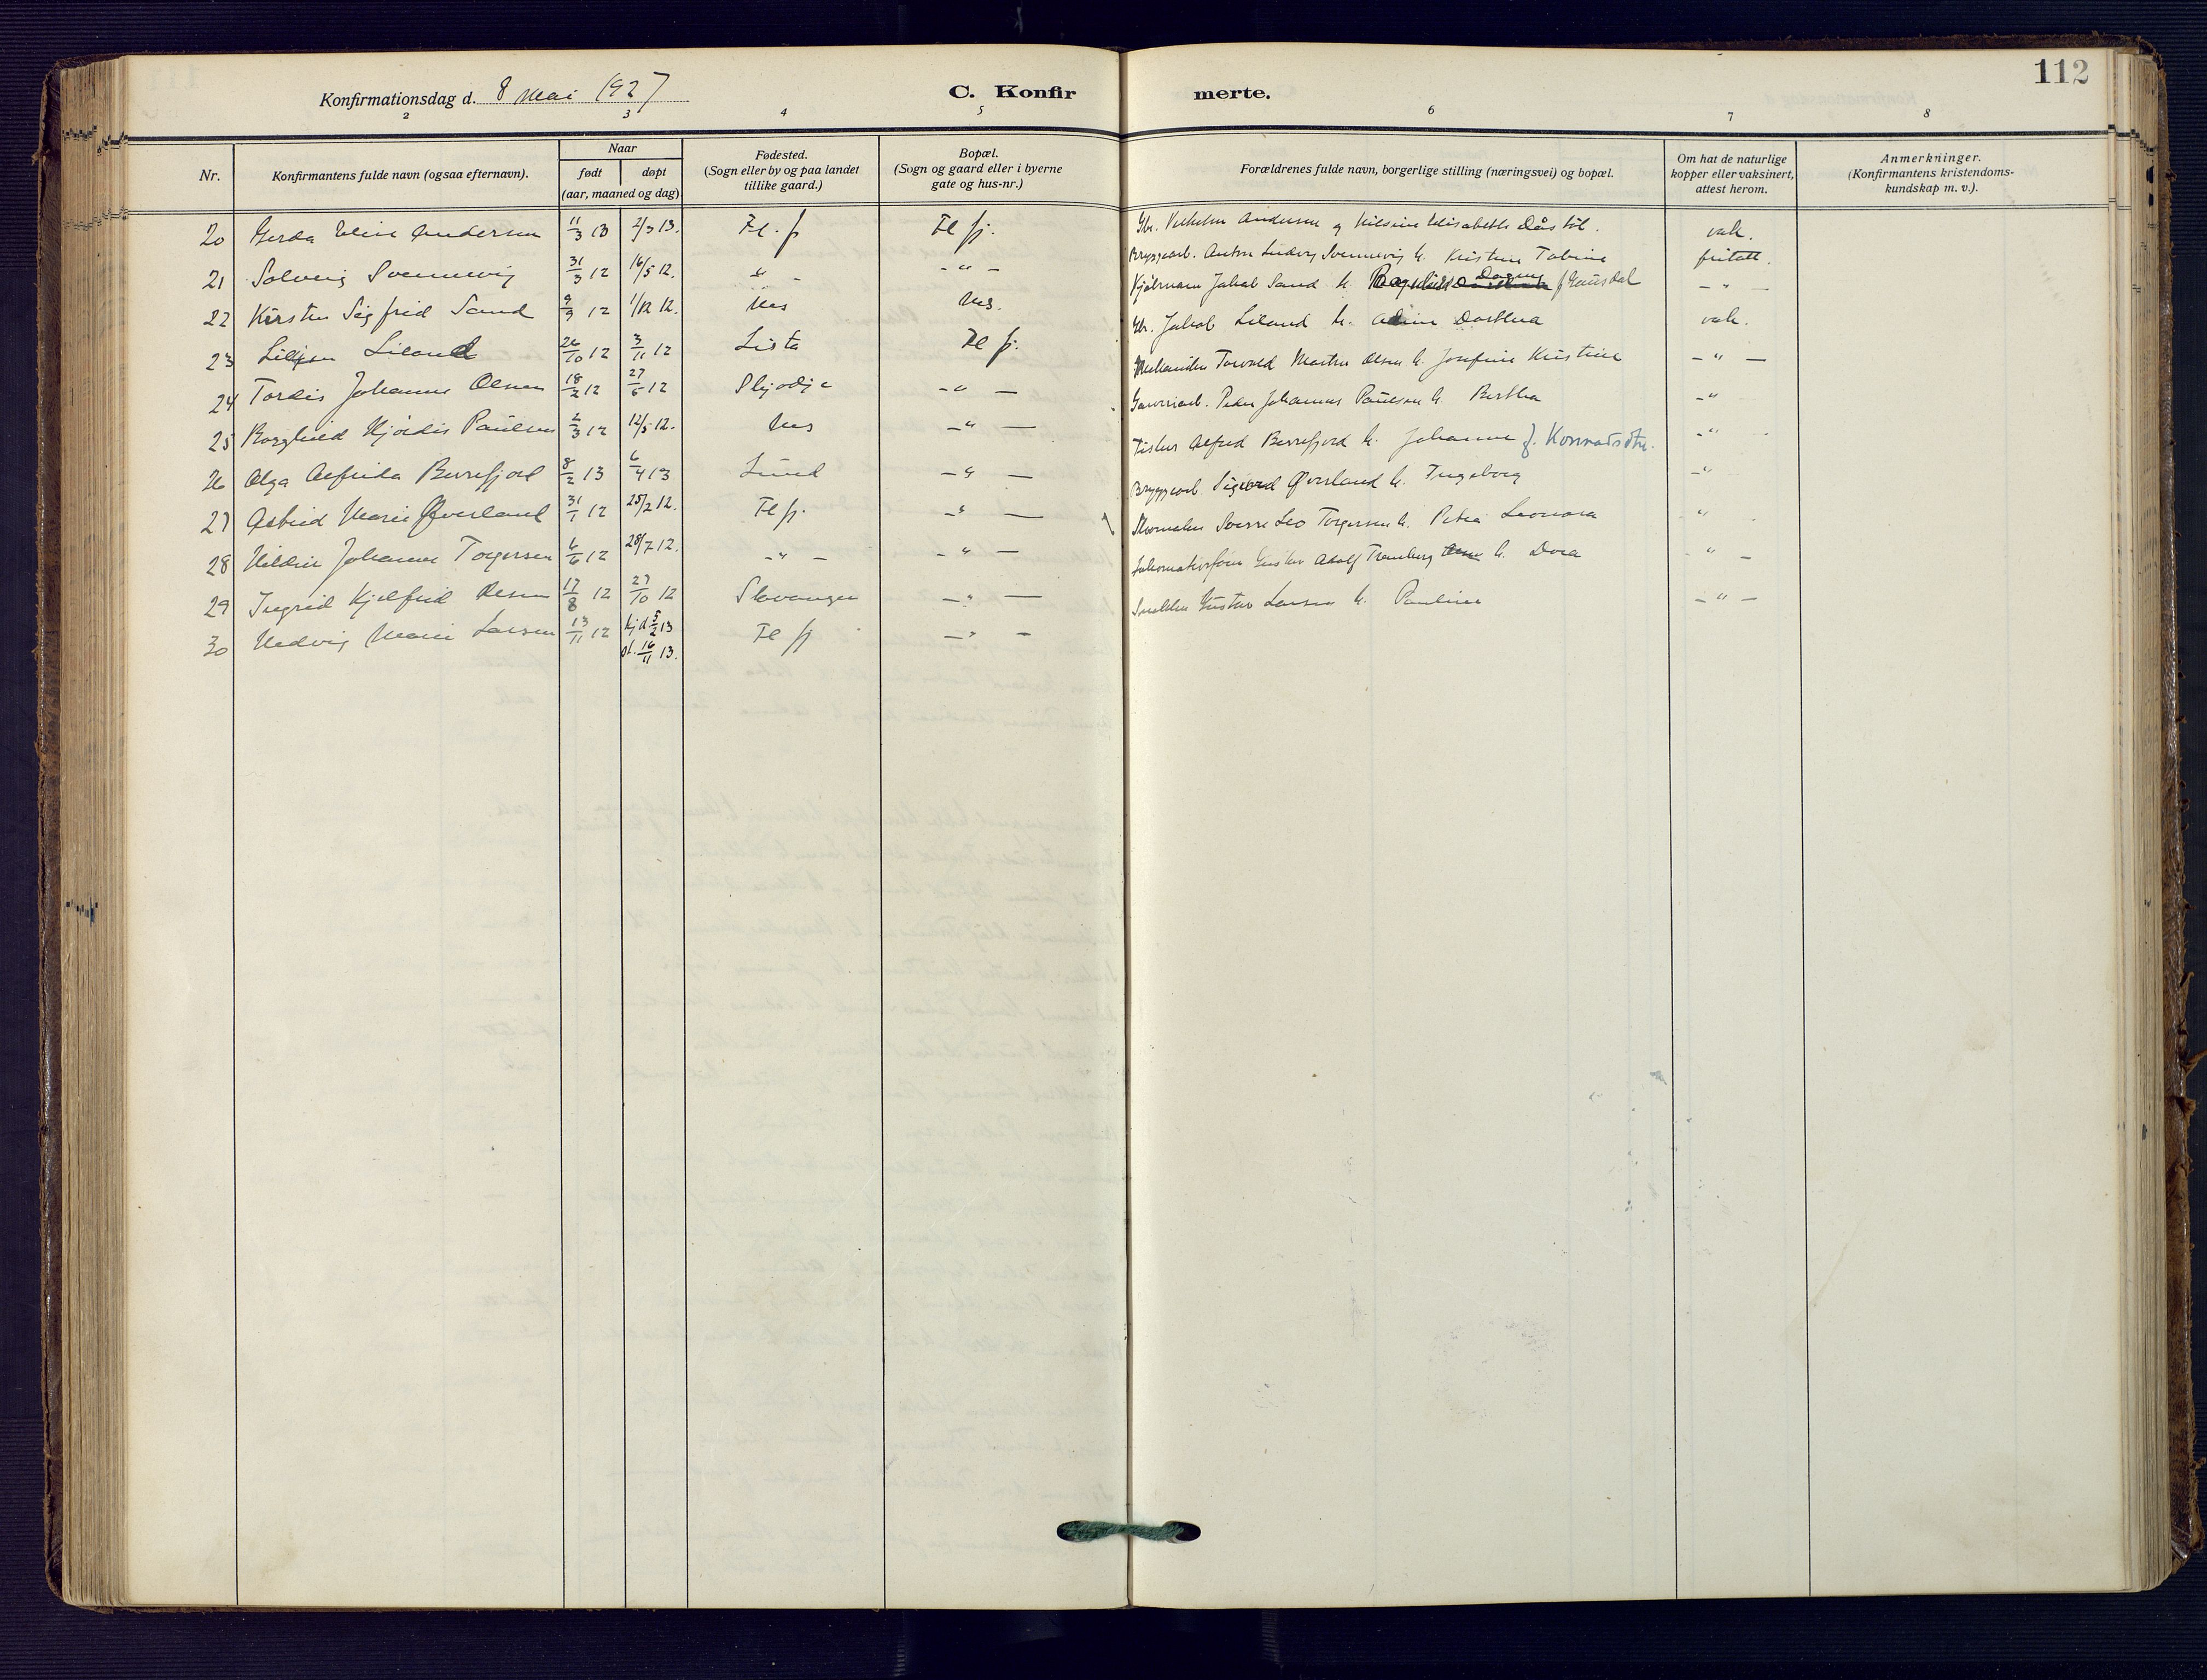 112
Konfirmationsdag d. 8 Mai 1927
C. Konfir merte.
2 3 4 5 6 7 8
Nr.
Konfirmantens fulde navn (ogsaa efternavn).
Naar
født døpt
(aar, maaned og dag)
Fødested.
(Sogn eller by og paa landet
tillike gaard.)
Bopæl.
(Sogn og gaard eller i byerne
gate og hus-nr.)
Forældrenes fulde navn, borgerlige stilling (næringsvei) og bopæl.
Om hat de naturlige
kopper eller vaksinert,
attest herom.
Anmerkninger.
(Konfirmantens kristendoms-
kundskap m. v.).
20 Gerda Andersen 11/3 13 13. Fl. fj Fl fj. Vilhelm Andersen og Elisabeth vak.
21 Solveig Svennevig 31/3 12 16/5 12. - " - - " - Bryggearb. Anton Ludvig Svennevig h. Kristine Tobine fritatt.
22 Kirsten Sigfrid Sand 9/9 12 1/12 12. Nes Nes. Jakob Sand h. Dagny f Gausdal - " -
23 Liland 26/10 12 3/11 12 Lista Fl fj. Jakob Liland h. Dorthea vak.
24 Tordis Johanne Olsen 18/2 12 27/5 12 - " - Martin Olsen h. Josefine Kristine - " -
25 Borghild Hjørdis Paulsen 2/3 12 12/5 12. Nes - " - Garveriarb. Peder Johannes Paulsen h. Bertha - "
26 Olga Alfrida Berrefjord 8/2 13 6/4 13 Lund - " - Fisker Alfred Berrefjord h. Johanne f. Konradsdtr. - "
27 Astrid Marie Øverland 31/1 12 25/2 12. Fl fj. - " - Bryggearb. Sigurd Øverland h. Ingeborg - "
28 Johanne Torgersen 6/6 12 28/7 12. - " - - " - Skomaker Sverre Leo Torgersen h. Petra Leonora "
29 Ingrid Kjellfrid Olsen 17/8 12 27/10 12 Stavanger - " - Gustav Adolf h. Dora " -
30 Hedvig Marie Larsen 13/11 12 hjd 5/2 13 Fl fj - " - Gustav Larsen h. Pauline - " -
st. 16/11 13.